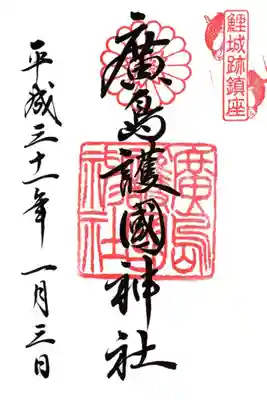 鯉城跡鎮座
廣島護國神社
廣島護國神社
平成三十一年一月三日